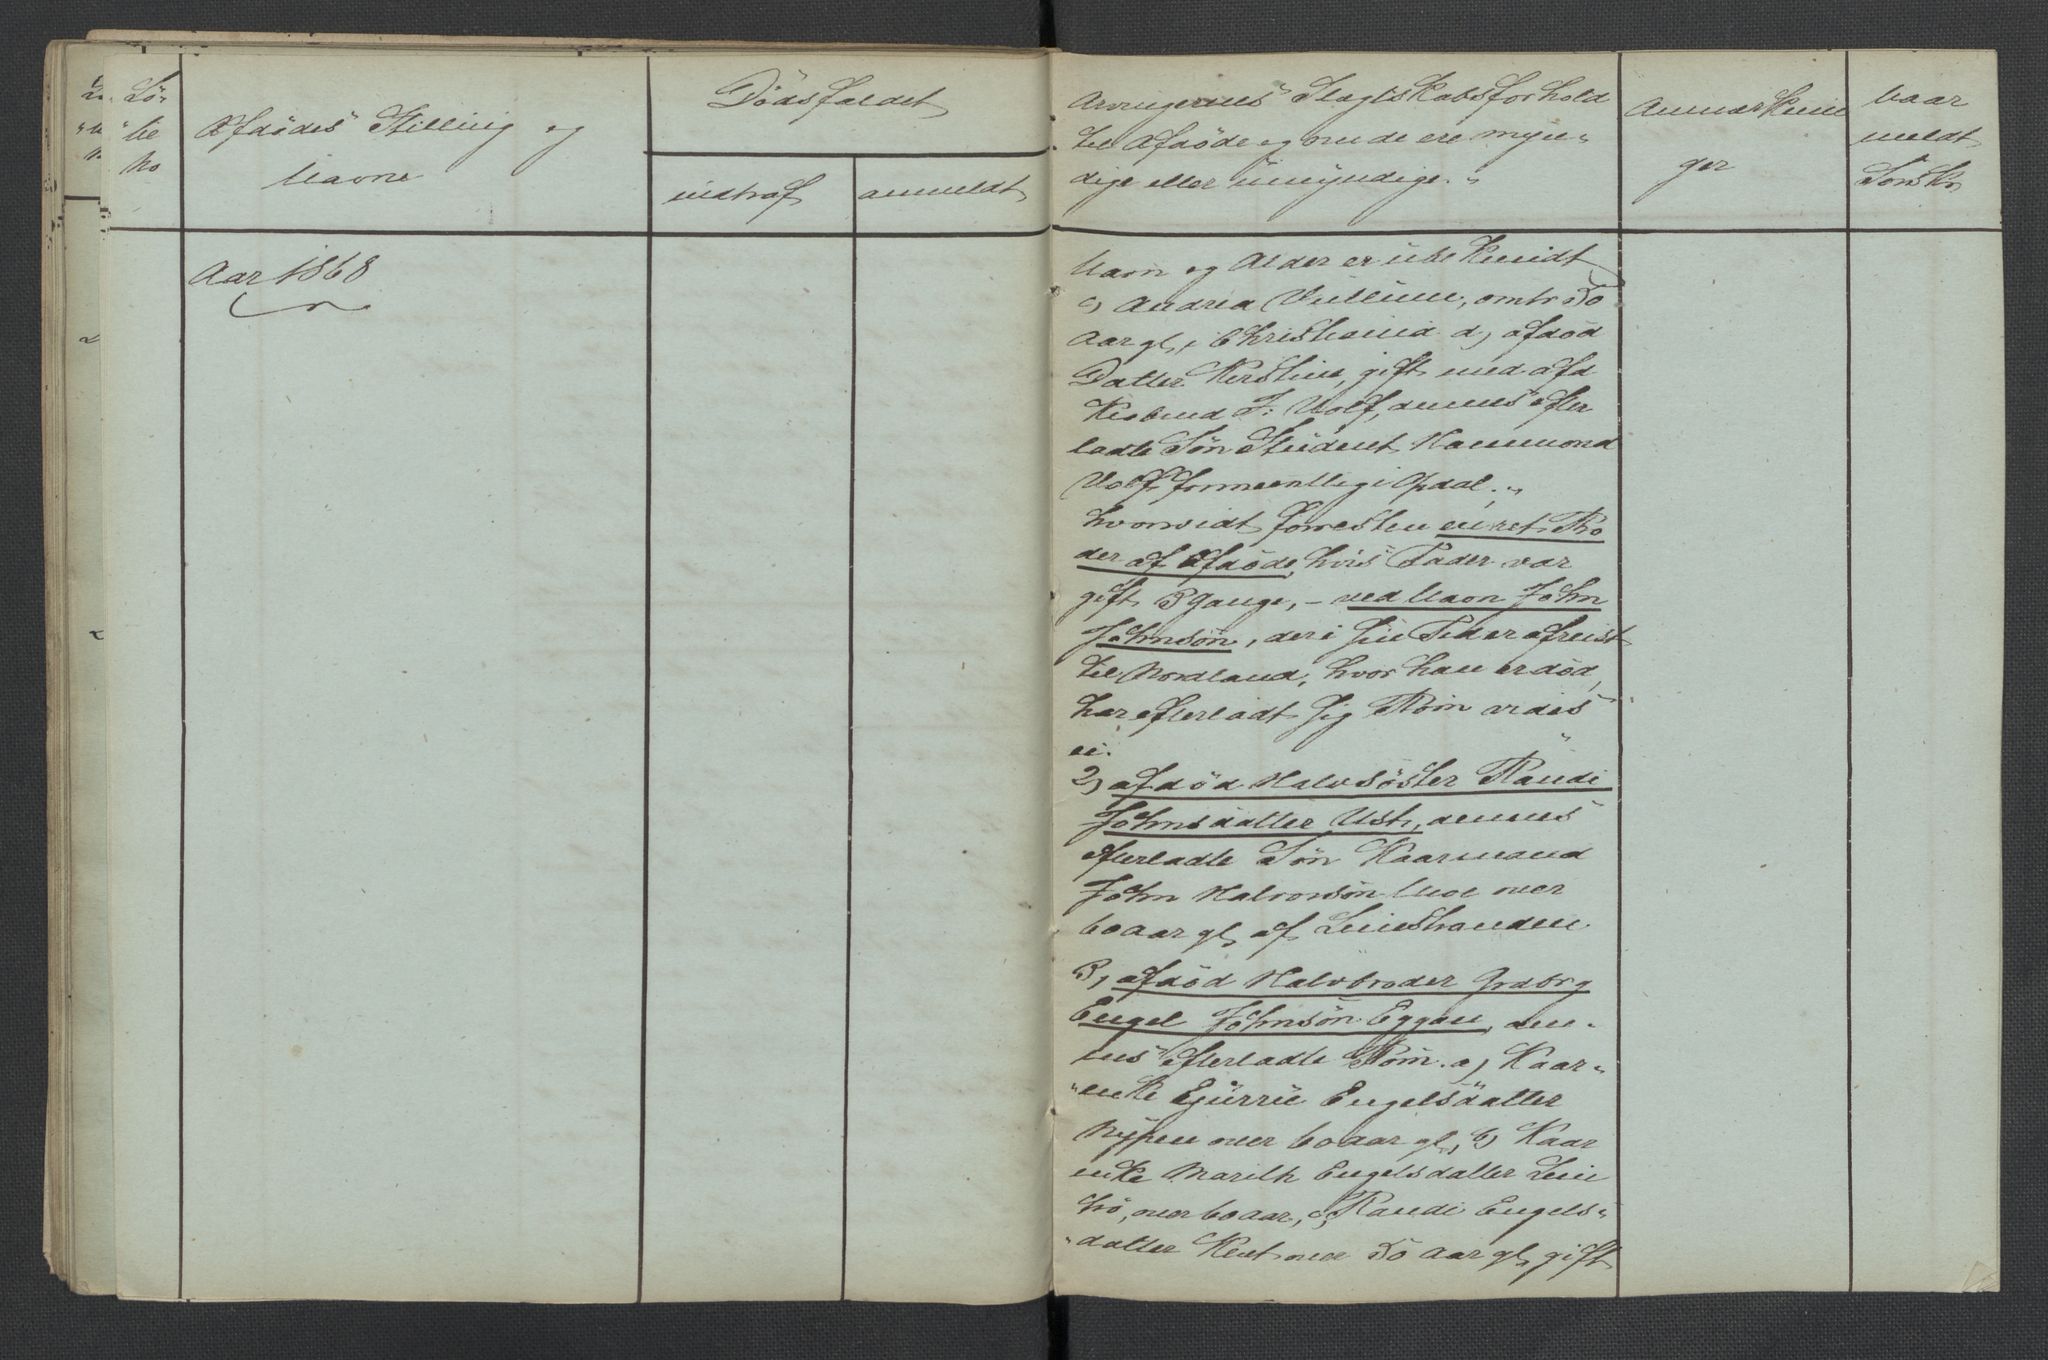 Lö-
be
No
Afdödes Stilling og
Navne
Dödsfaldet
indtraf
anmeldt
Arvingernes Slagtskabsforhold
til Afdöde og om de ere myn-
dige eller umyndige.
Anmærknin
ger
Naar
meldt
Sorskr
Aar 1868
Navn og Alder er ubekjendt
c) Andrea Vullum, omtr 50
Aar gl, i Christiania d) afdöd
Datter Kerstine, gift med afd
Kisbmd J: Wolf, dennes efter
ladte Sön Student Hammond
Wolf formeentlig i Opdal.
hvorvidt forresten en ret Bro
der af Afdöde, hvis Fader var
gift 3 Gange, - ved Navn John
Johnsön, der i sin Tid er afreist
til Nordland, hvor han er död,
har efterladt sig Börn vides
ei.
2) afdöd Halvsöster Randi
Johnsdatter Ust, dennes
efterladte Sön Kaarmand
John Halvorsön over
60 aar gl, af Leinstranden
3, afdöd Halvbroder Grdbrg
Engel Johnsön Eggen, den-
nes efterladte Börn. a) Kaar-
enke Gjurrie Engelsdatter
Nypen over 60 aar gl, b) Kaar
enke Marith Engelsdatter Lein
, over 60 aar, c, Randi Engels-
datter over 50 aar gl, gift